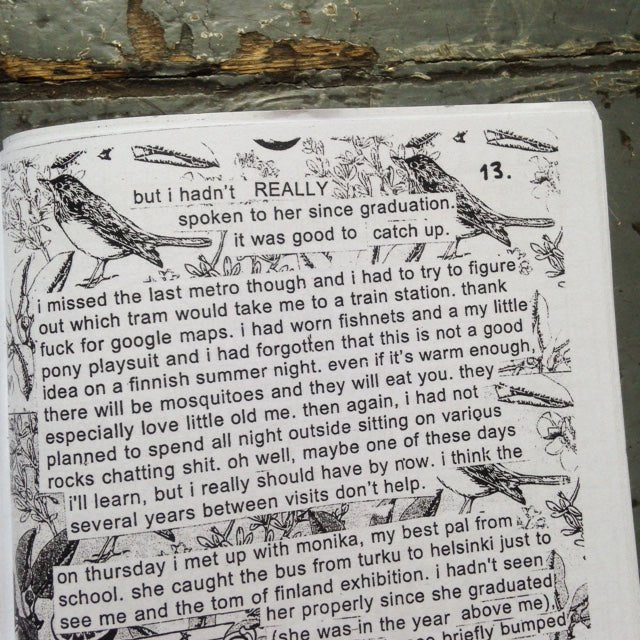 13.
but i hadn't REALLY
spoken to her since graduation.
it was good to catch up.
i missed the last metro though and i had to try to figure
out which tram would take me to a train station. thank
fuck for google maps. i had worn fishnets and a my little
pony playsuit and i had forgotten that this is not a good
idea on a finnish summer night. even if it's warm enough,
there will be mosquitoes and they will eat you. they
especially love little old me. then again, i had not
planned to spend all night outside sitting on various
rocks chatting shit. oh well, maybe one of these days
i'll learn, but i really should have by now. i think the
several years between visits don't help.
on thursday i met up with monika, my best pal from
school. she caught the bus from turku to helsinki just to
see me and the tom of finland exhibition. i hadn't seen
her properly since she graduated
(she was in the year above me).
briefly bumped